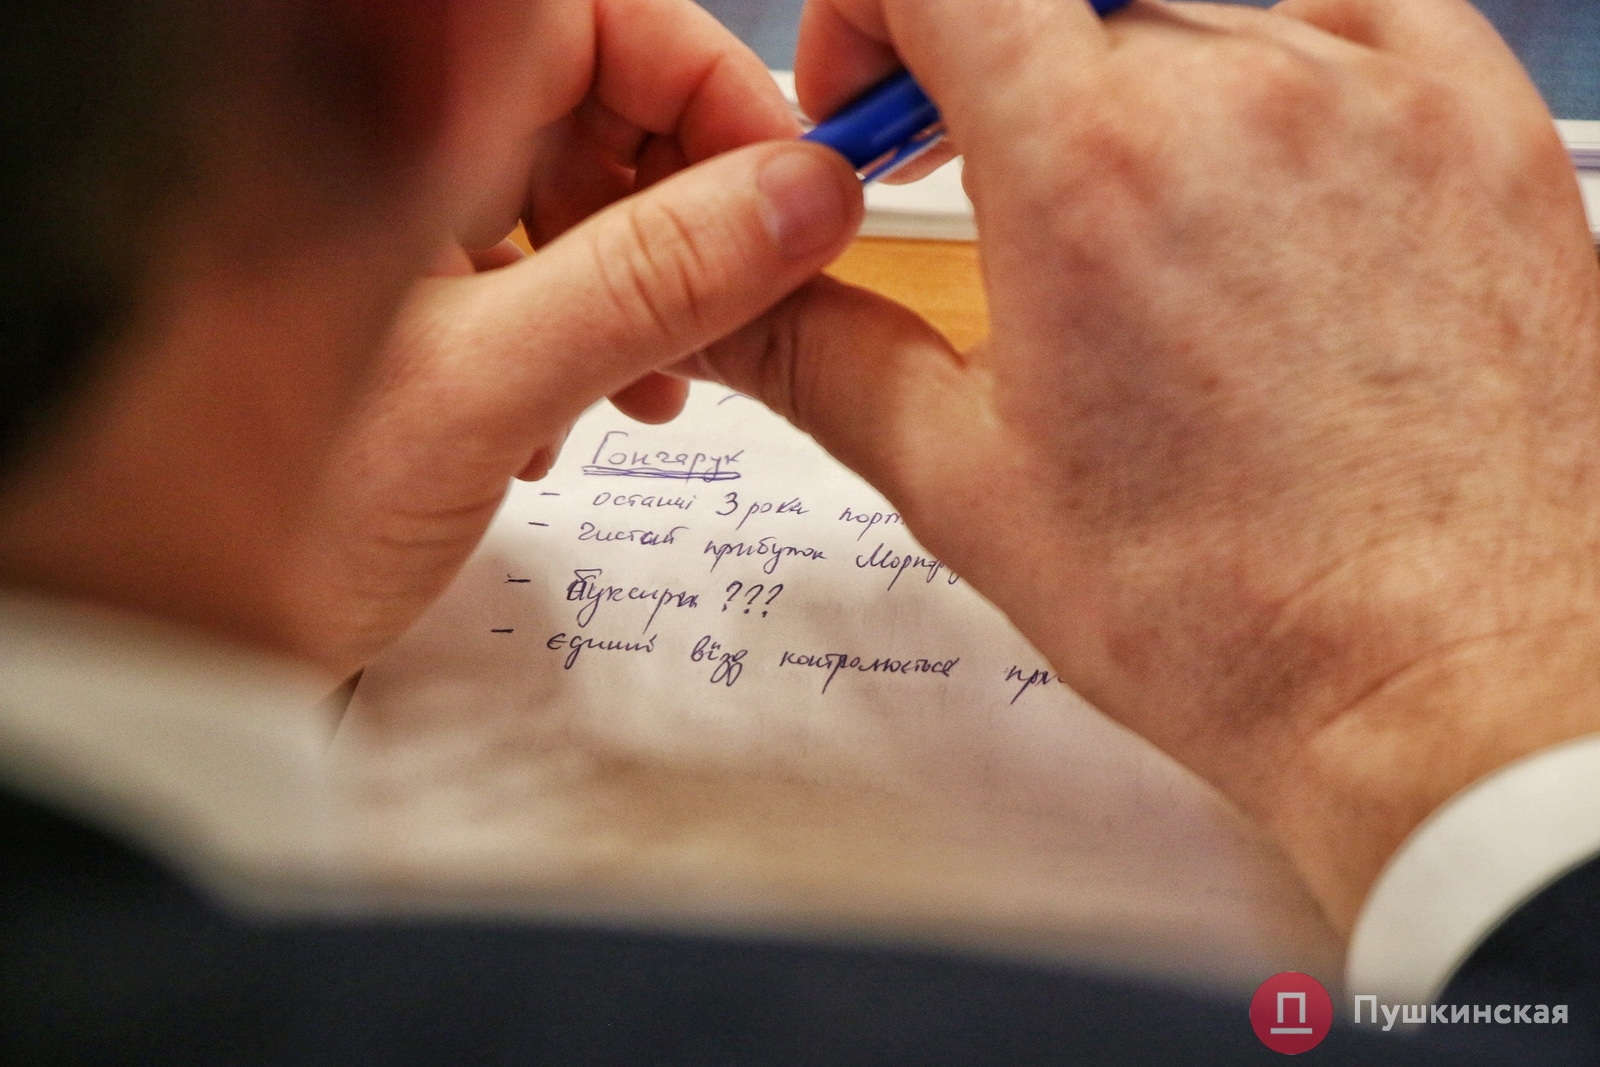 Гончарук
- останні 3 роки порт
- чистий прибуток Морпор
- Буксири ???
- єдиний в'їзд контролюється при
Пушкинская